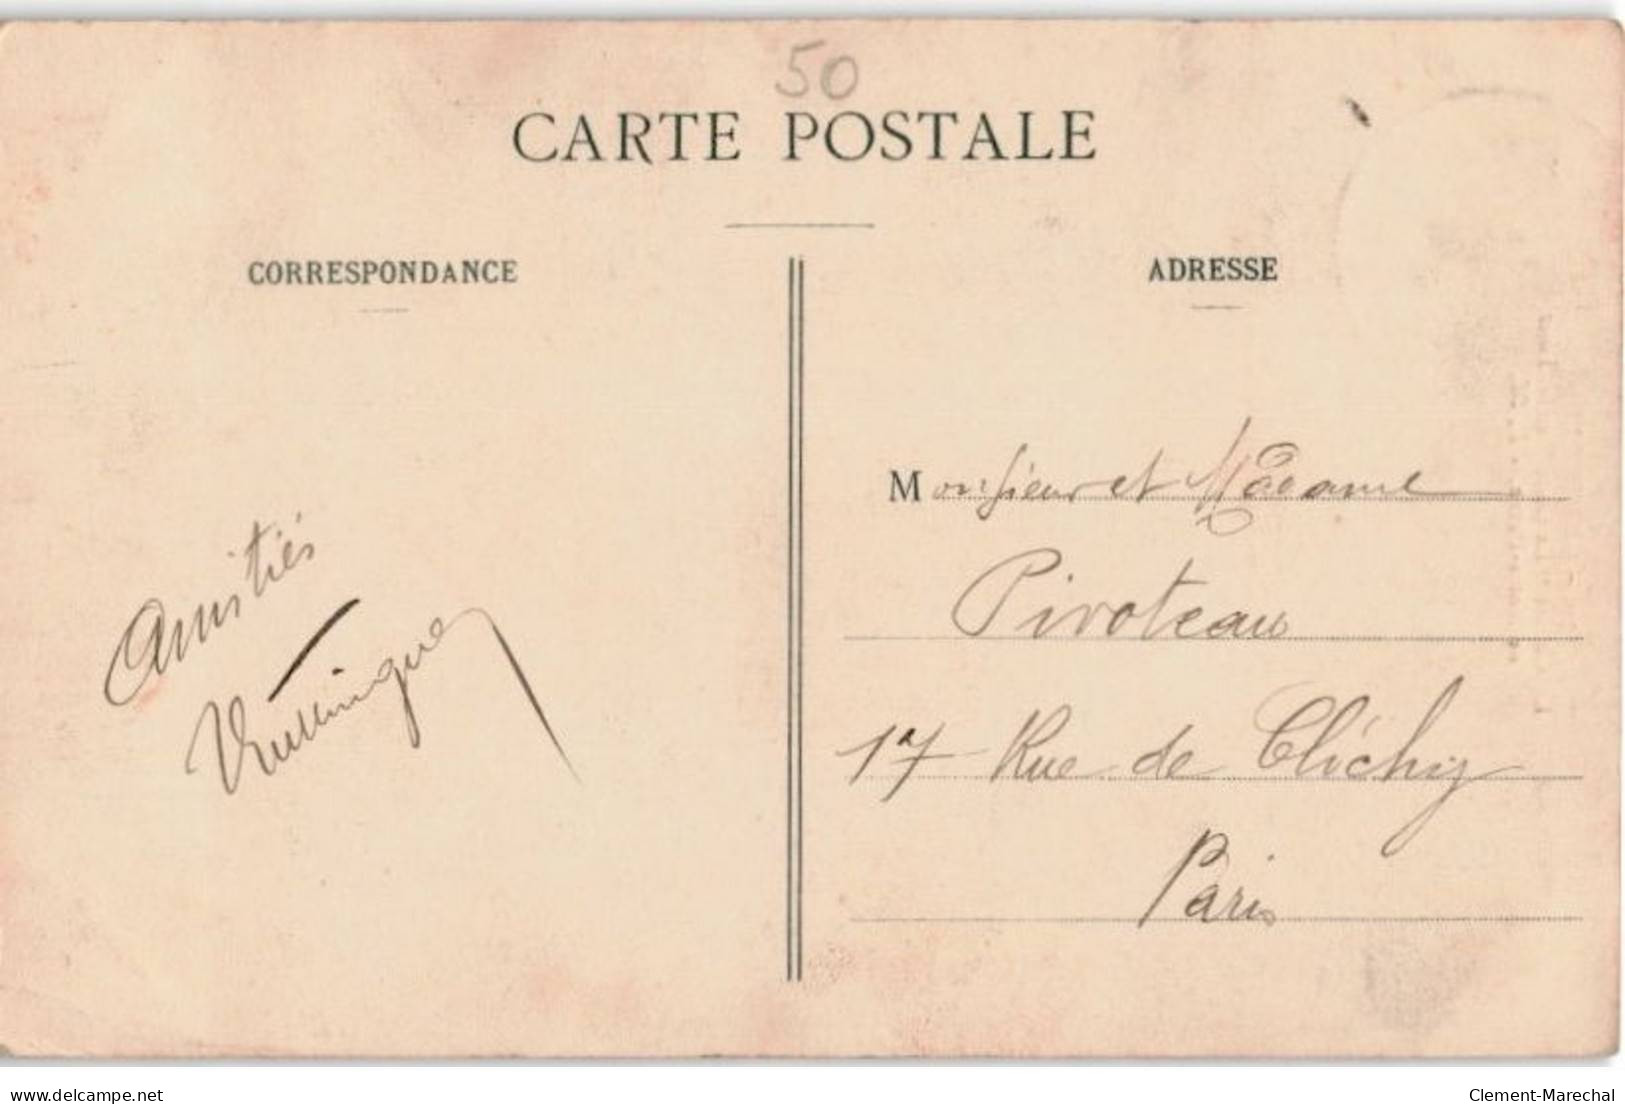 50
CARTE POSTALE
CORRESPONDANCE
ADRESSE
Amitiés
Monsieur et Madame
Pivoteau
17 Rue de Clichy
Paris
delcampe.net
Clement-Marechal